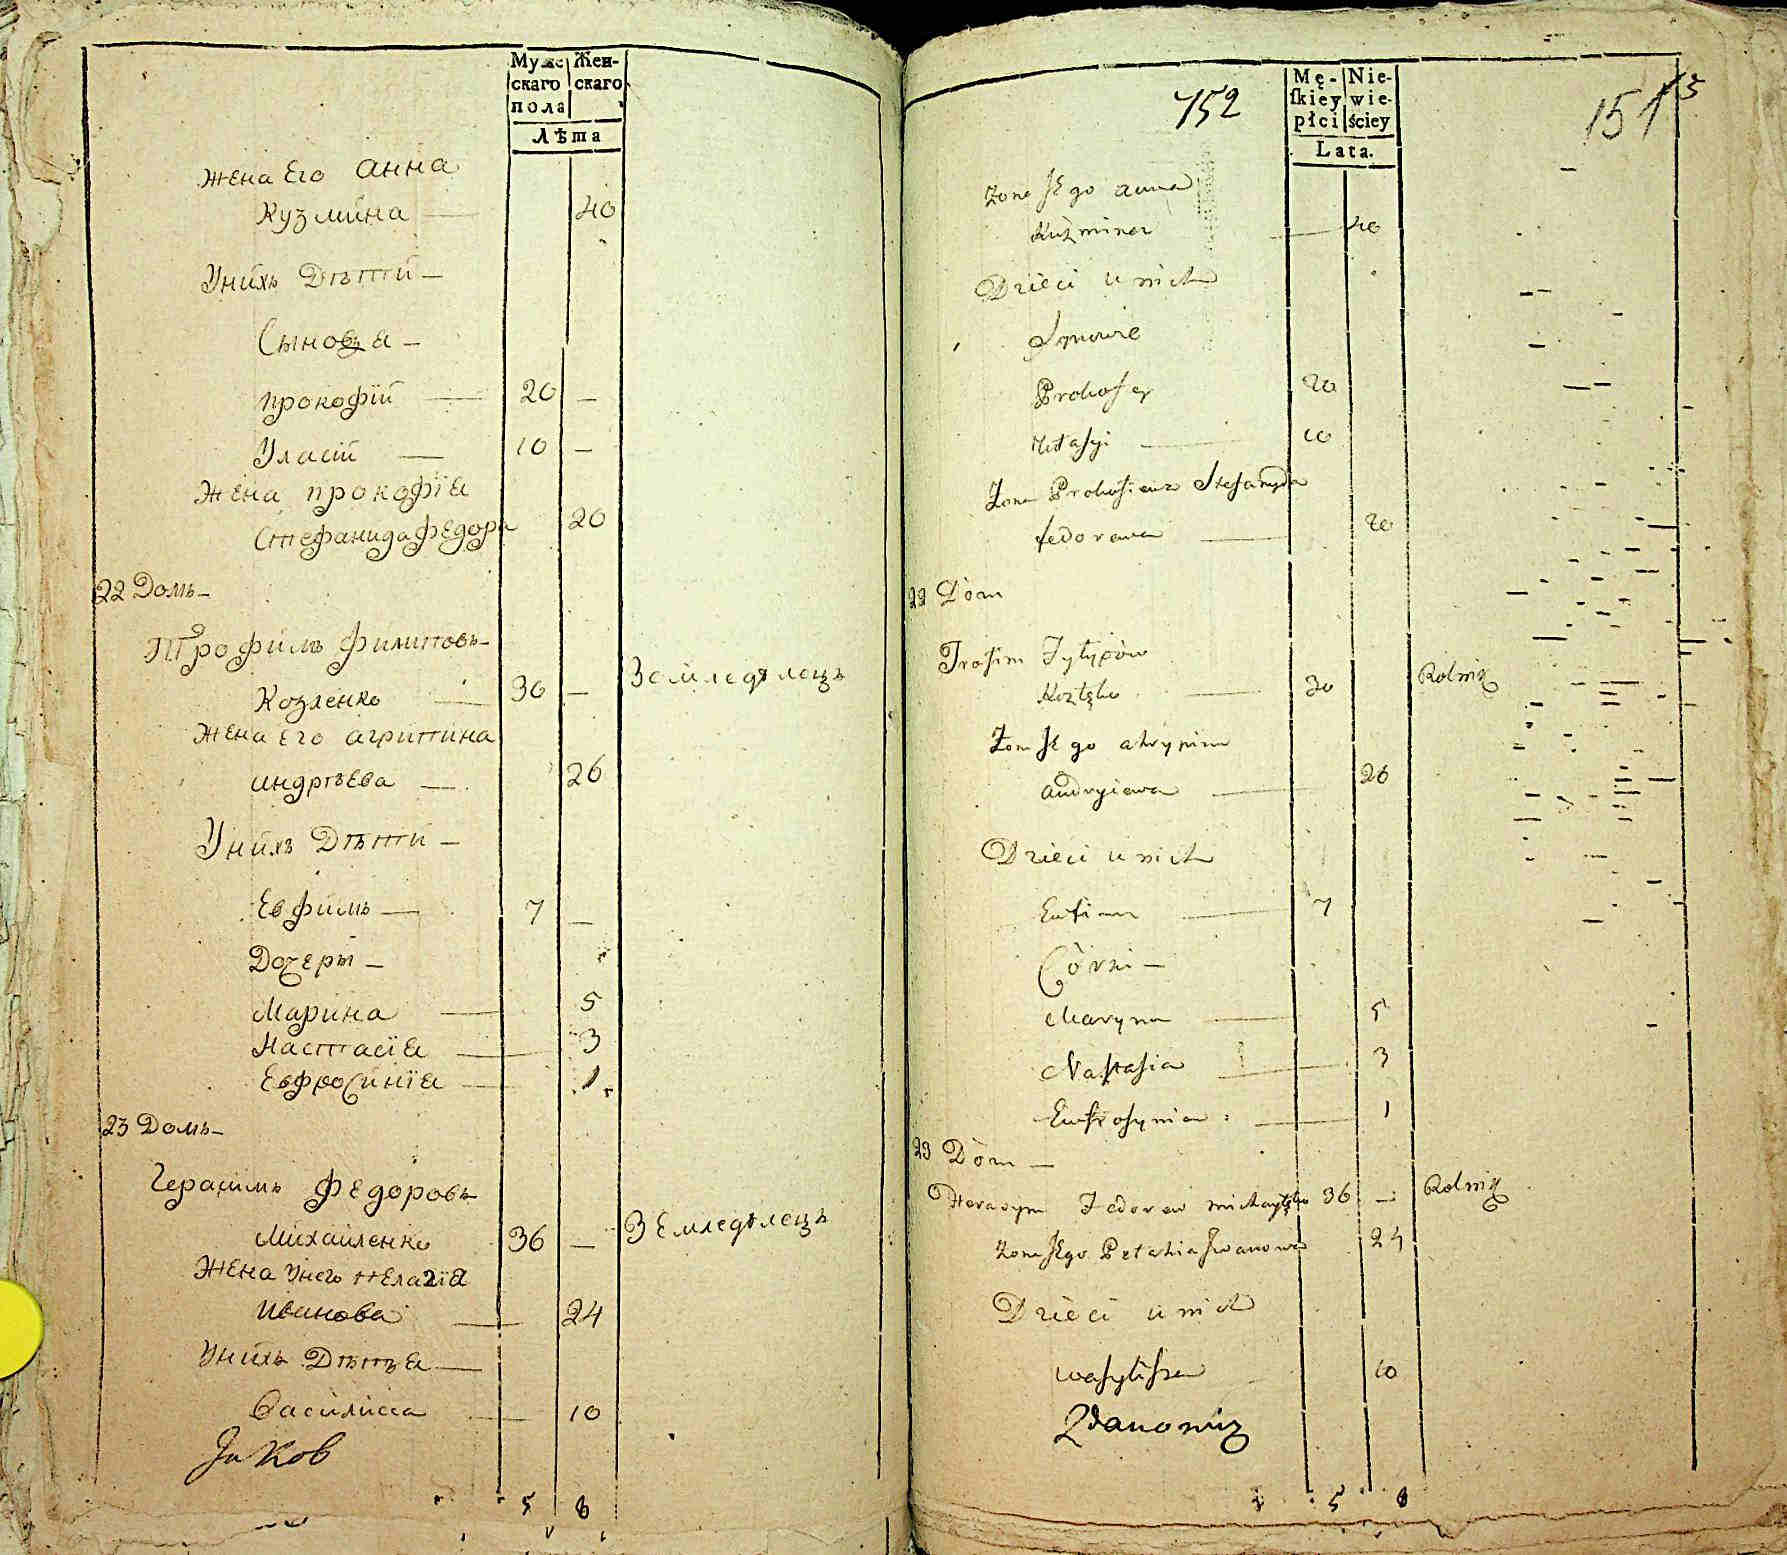 Муже Жен-
скаго скаго
пола
Лѣта
Жена Его Анна
Кузмина — 40
Унихъ Дѣтти —
Сыновѣя —
прокофій — 20 —
Уласій — 10 —
Жена прокофїя
Стефанида федора 20
22 Домъ —
Трофимъ филиповъ —
Козленко — 30 — Земледѣлецъ
Жена Его агрипина
индрѣева — 26
Унихъ Дѣтти —
Евфимъ — 7 —
Дочеры —
Марина — 5
Настасїя — 3
Евфросинїя — 1
23 Домъ —
Герасимъ Федоровъ
Михайленко 36 — Земледѣлецъ
Жена Унего пелагїя
Иванова — 24
Унихъ Дѣтѣя —
Василиса — 10
Яков
5 8
752
1515
Mę- Nie-
ſkiey wie-
płci ściey
Lata.
Zona JEgo anna
Kuzmina — 40
Dzieci u nich
Synowie
Prokofey 20
10
Zona Prokofiewa Stefanyda
fedorowa — 20
22 Dòm
Trofim Fylypòw
Kozłęko — 30 Rolnik
Zona JEgo ahrypina
andryiewa — 26
Dzieci u nich
Eufim — 7
Còrki —
Maryna — 5
Nastasia — 3
Eufrosynia : — 1
23 Dòm —
Herasym Fedorow michayłęko 36 — Rolnik
Zona JEgo Pelahia Jwanowa 24
Dzieci u nich
wasylissa 10
Zdanowicz
5 8